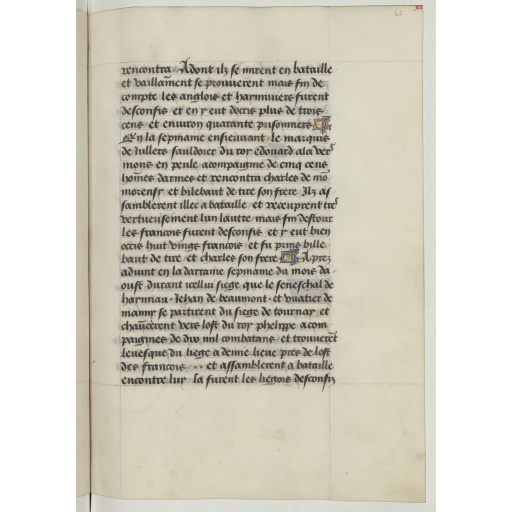 rencontra Adont ilz se mirent en bataille
et vaillãment se prouverent mais fin de
compte les anglois et haynuiers furent
desconfis et en y eut docis plus de trois
cens et environ quarante prisonniers
En la sepmaine ensieuvant le marquis
de Jullers sauldoier du roy edouard a la ver
mons en peule acompaignie de cinq cens
hom̃es darmes et rencontra charles de mõ
morensy et bilebaut de trie son frere Ilz as
samblerent illec a bataille et receuprent tres
vertueusement lun lautre mais fin destour
les francois furent desconfis et y eut bien
occis huit vings francois et fu prins bille
baut de trie et charles son frere Aprez
advint en la darraine sepmaine du mois da
oust durant icellui siege que le seneschal de
haynnau Jehan de beaumont et vvatier de
mauny se partirent du siege de tournay et
chevaucerent vers lost du roy phelippe acom
paignies de dix mil combatans et trouverẽt
levesque du liege a demie lieue pres de lost
des francois et assamblerent a bataille
encontre luy la furent les liegois desconfis